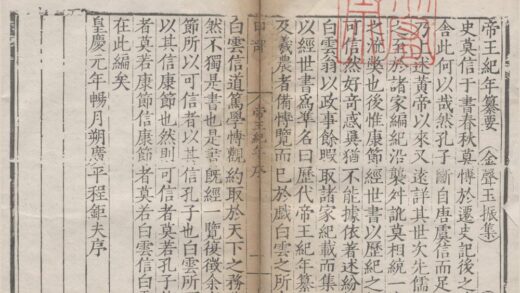 帝王紀年纂要 金聲玉振集
史莫信于書春秋莫愽於遷史記後之
舍此何以哉然孔子斷自唐虞信而足
乃上述黃帝以来又遠詳其世次先儒
之至於諸家編紀沿襲舛訛莫相統一
之也後惟康節經世書以歷紀之
可信然好奇惑異猶不能據依著述紛
白雲翁以政事餘暇取諸家紀載而集
以經世書為準名曰歷代帝王紀年纂
及羲農者備愽覽而已於戲白雲之所
帝王紀年序 一
白雲信道篤學愽觀約取於天下之務
然不獨是書也是書既經一覽復徵余
節所以可信者以其信孔子也白雲所
以其信康節也然則可信者莫若孔子
者莫若康節信康節者莫若白雲信白
在此編矣
皇慶元年暢月朔廣平程鉅夫序